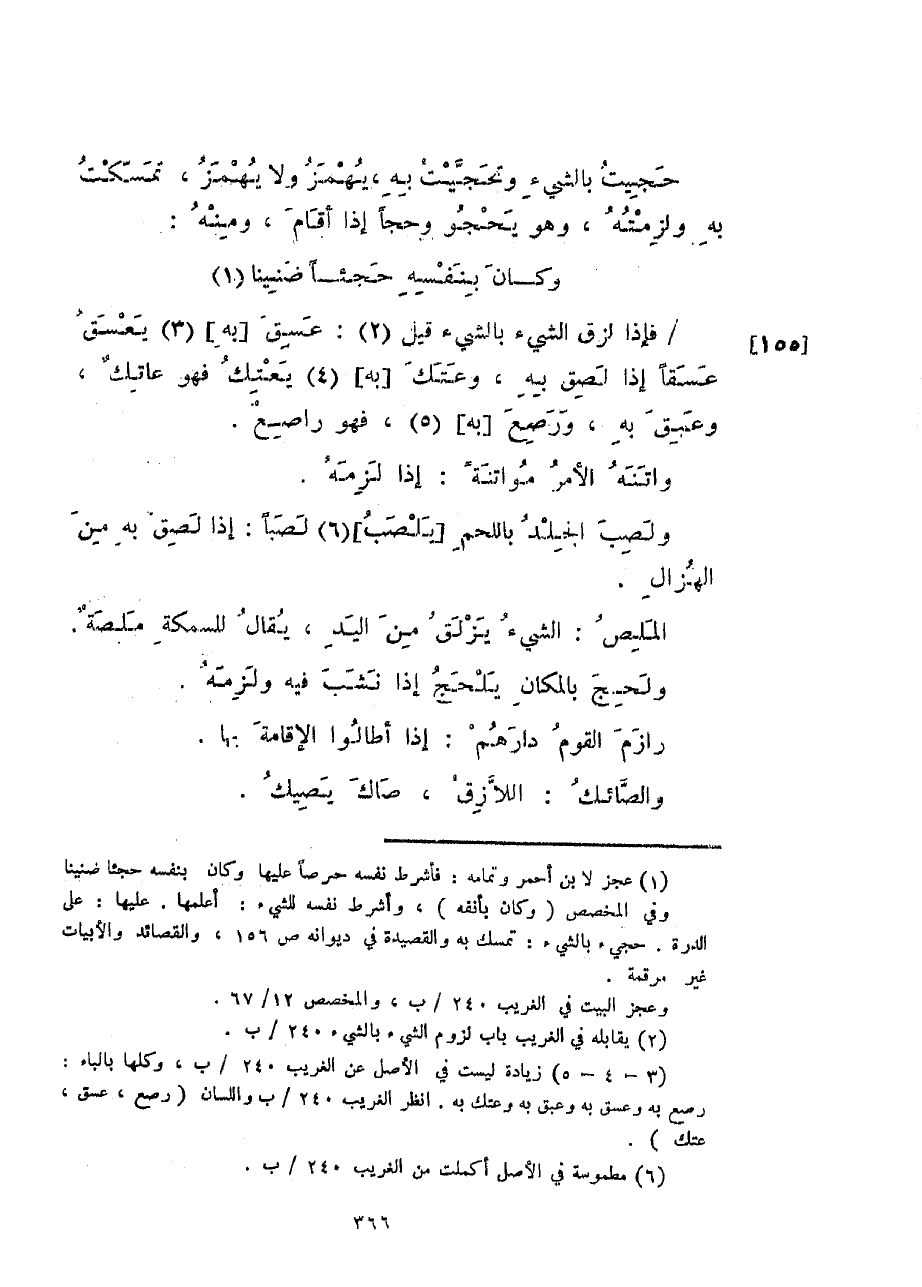 حَجِيتُ بالشيءِ وتَحَجَّيْتُ بِهِ ، يُهْمَزُ ولا يُهْمَزُ ، تمَسَّكْتُ
بهِ ولزِمْتُهُ ، وهو يَحْجُو وحجاً إذا أقَامَ ، ومِنْهُ :
وكانَ بِنَفْسِهِ حَجئاً ضَنِينا (١)
[١٥٥] / فإذا لزق الشيء بالشيء قيل (٢) : عَسِقَ [بهِ] (٣) يَعْسَقُ
عَسَقاً إذا لَصِق بِهِ ، وعَتَكَ [به] (٤) يَعْتِكُ فهو عاتِكٌ ،
وعَبِقَ بهِ ، وَرَصِعَ [به] (٥) ، فهو راصِعٌ .
واتَنَهُ الأمرُ مُواتنَةً : إذا لَزِمَهُ .
ولَصِبَ الجِلْدُ باللحمِ [يَلْصَبُ](٦) لَصَباً : إذا لَصِقَ بهِ مِنَ
الهُزالِ .
المَلِصُ : الشيءُ يَزْلَقُ مِنَ اليَدِ ، يُقالُ للسمكةِ مَلِصَةٌ .
ولَحِجَ بالمكانِ يَلْحَجُ إذا نَشَبَ فيه ولَزِمَهُ .
رازَمَ القومُ دارَهُمْ : إذا أطالُوا الإقامةَ بها .
والصَّائكُ : اللاَّزِقْ ، صَاكَ يَصِيكُ .
(١) عجز لا بن أحمر وتمامه : فأشرط نفسه حرصاً عليها وكان بنفسه حجئا ضنينا
وفي المخصص ( وكان بأنفه ) ، وأشرط نفسه للشيء : أعلمها . عليها : على
الدرة . حجيء بالشيء : تمسك به والقصيدة في ديوانه ص ١٥٦ ، والقصائد والأبيات
غير مرقمة .
وعجز البيت في الغريب ٢٤٠ / ب ، والمخصص ١٢/ ٦٧ .
(٢) يقابله في الغريب باب لزوم الشيء بالشيء ٢٤٠ / ب .
(٣ – ٤ – ٥) زيادة ليست في الأصل عن الغريب ٢٤٠ / ب ، وكلها بالباء :
رصع به وعسق به وعبق به وعتك به . انظر الغريب ٢٤٠ / ب واللسان ( رصع ، عسق ،
عتك ) .
(٦) مطموسة في الأصل أكملت من الغريب ٢٤٠ / ب .
٣٦٦